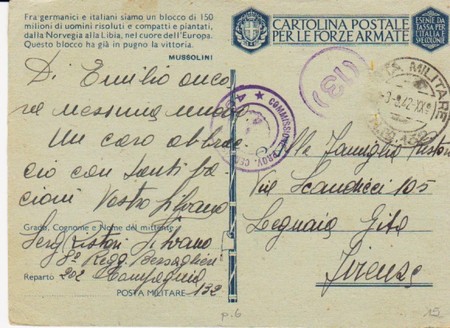 Fra germanici e italiani siamo un blocco di 150
milioni di uomini risoluti e compatti e piantati,
dalla Norvegia alla Libia, nel cuore dell'Europa.
Questo blocco ha già in pugno la vittoria.
MUSSOLINI
CARTOLINA POSTALE
PER LE FORZE ARMATE
ESENTE DA
TASSA PER
L'ITALIA
E COLONIE
Di Emilio anco
ra nessuna
Un caro abbrac
cio con tanti ba
cioni Vostro Silvano
Grado, Cognome e Nome del mittente:
Serg Silvano
Regg Bersaglieri
Reparto 202 Compagnia
POSTA MILITARE 132
(13)
COMMISSIONE PROV. CENS
POSTA MILITARE
Alla Famiglia
Via Scandicci 105
Legnaia
Firenze
p.6
15